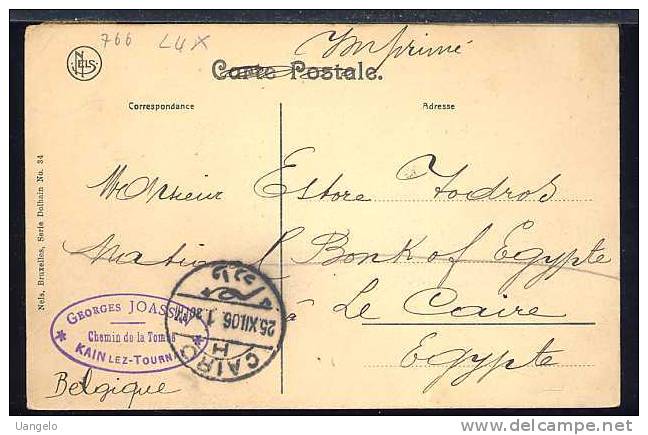 766 LUX
Imprimé
NELS
Carte Postale.
Correspondance
Adresse
Monsieur Estore Todros
National Bank of Egypte
à Le Caire
Egypte
Nels, Bruxelles, Serie Dolhain No. 34
GEORGES JOASSIN
Chemin de la Tombe
KAIN LEZ-TOURNAI
Belgique
CAIRO
H
25.XII.06. 1.30
Uangelo
www.delcampe.net